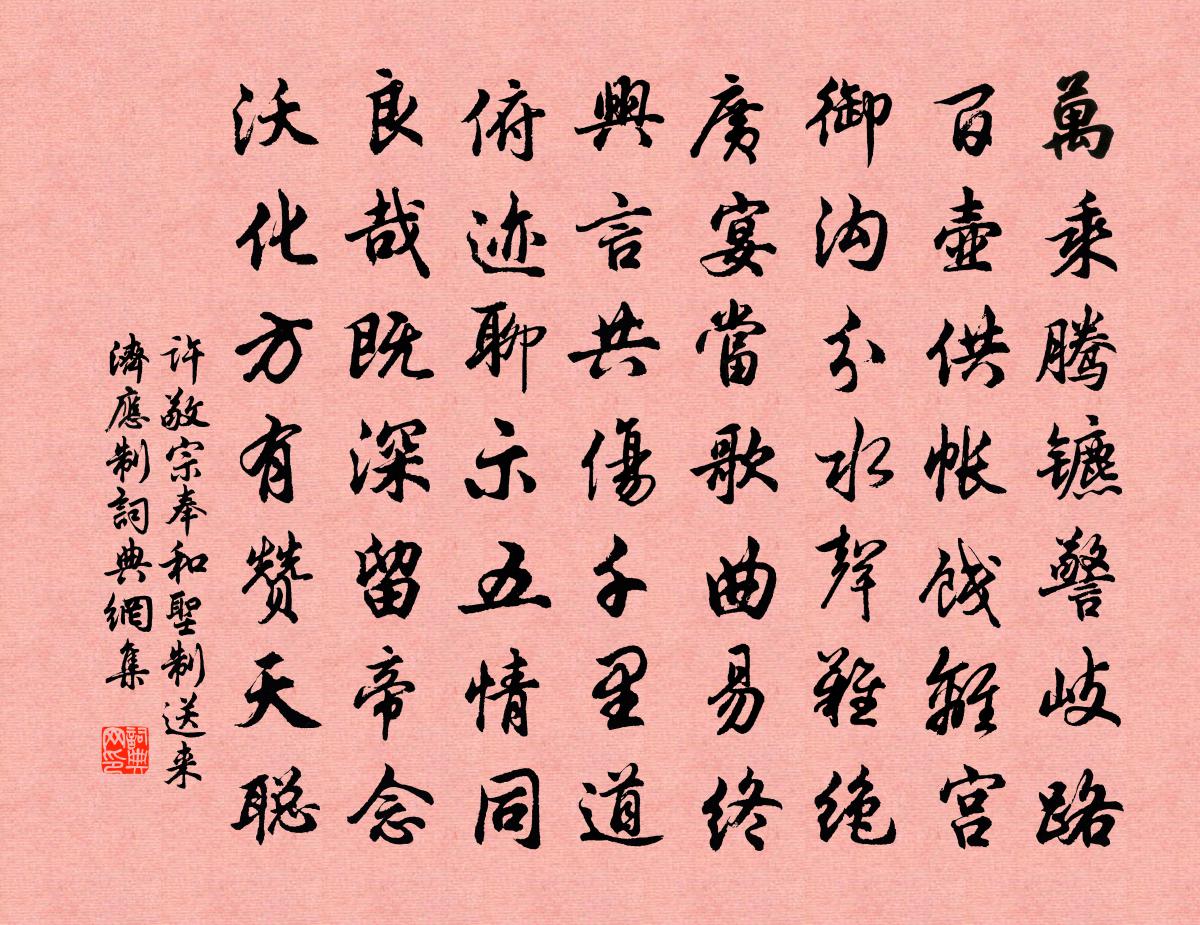 萬乘腾镳警岐路
百壶供帐饯離宫
御沟分水聲難绝
廣宴當歌曲易终
興言共傷千里道
俯迹聊示五情同
良哉既深留帝念
沃化方有赞天聪
許敬宗奉和聖制送来
濟應制詞典網集
詞典
网印